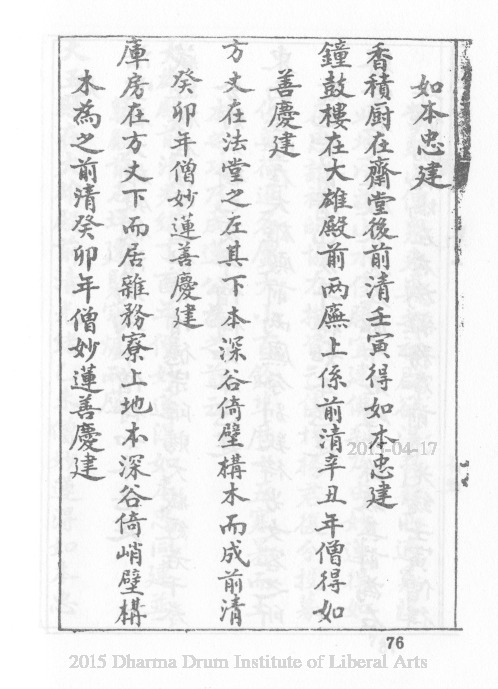 如本忠建
香積厨在齋堂後前清壬寅得如本忠建
鐘鼓樓在大雄殿前两廡上係前清辛丑年僧得如
善慶建
方丈在法堂之左其下本深谷倚壁構木而成前清
癸卯年僧妙蓮善慶建
庫房在方丈下而居雜務寮上地本深谷倚峭壁構
木為之前清癸卯年僧妙蓮善慶建
2015-04-17
76
2015 Dharma Drum Institute of Liberal Arts